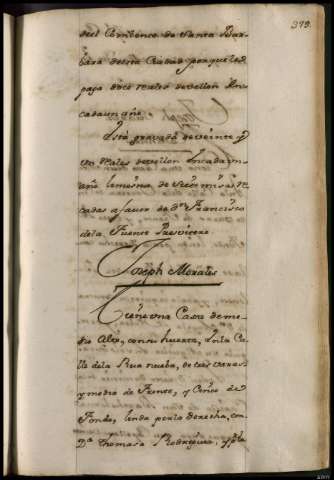 379.
del Combento de Santa Bar-
bara desta Ciudad por que les
paga doze reales de vellon en
cada un año
Está gravada de veinte y
un reales de vellon en cada un
año limosna de Seis misas re-
zadas a favor de Dn. Francisco
de la Fuente Presvitero
Joseph Morales
Tiene una Casa de me-
dio alto, con su huerta, en la Ca-
lle de la Rua nueba, de tres varas
y media de Frente, y Cinco de
Fondo, linda por la derecha, con
Da. Thomasa Rodriguez, y por la